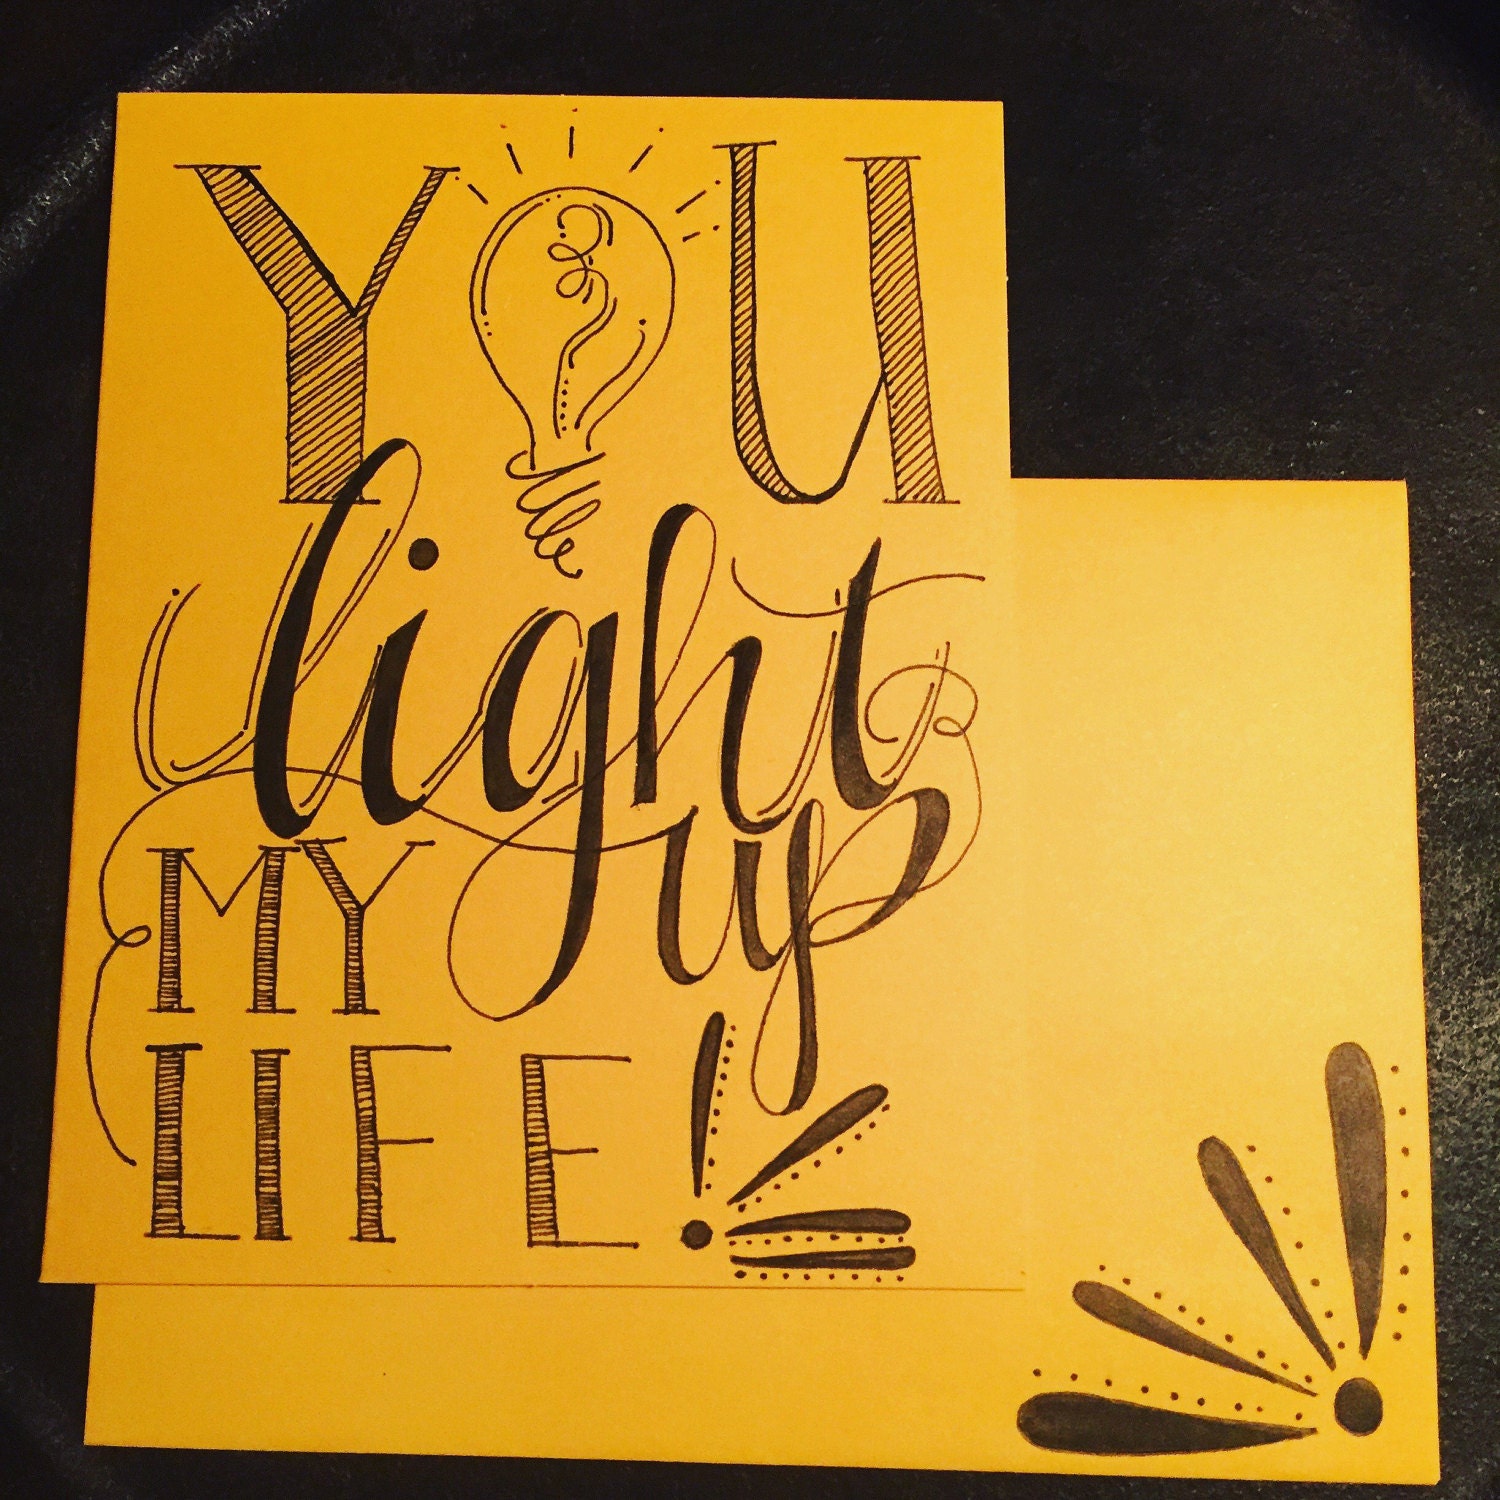 YOU
light
up
MY
LIFE!